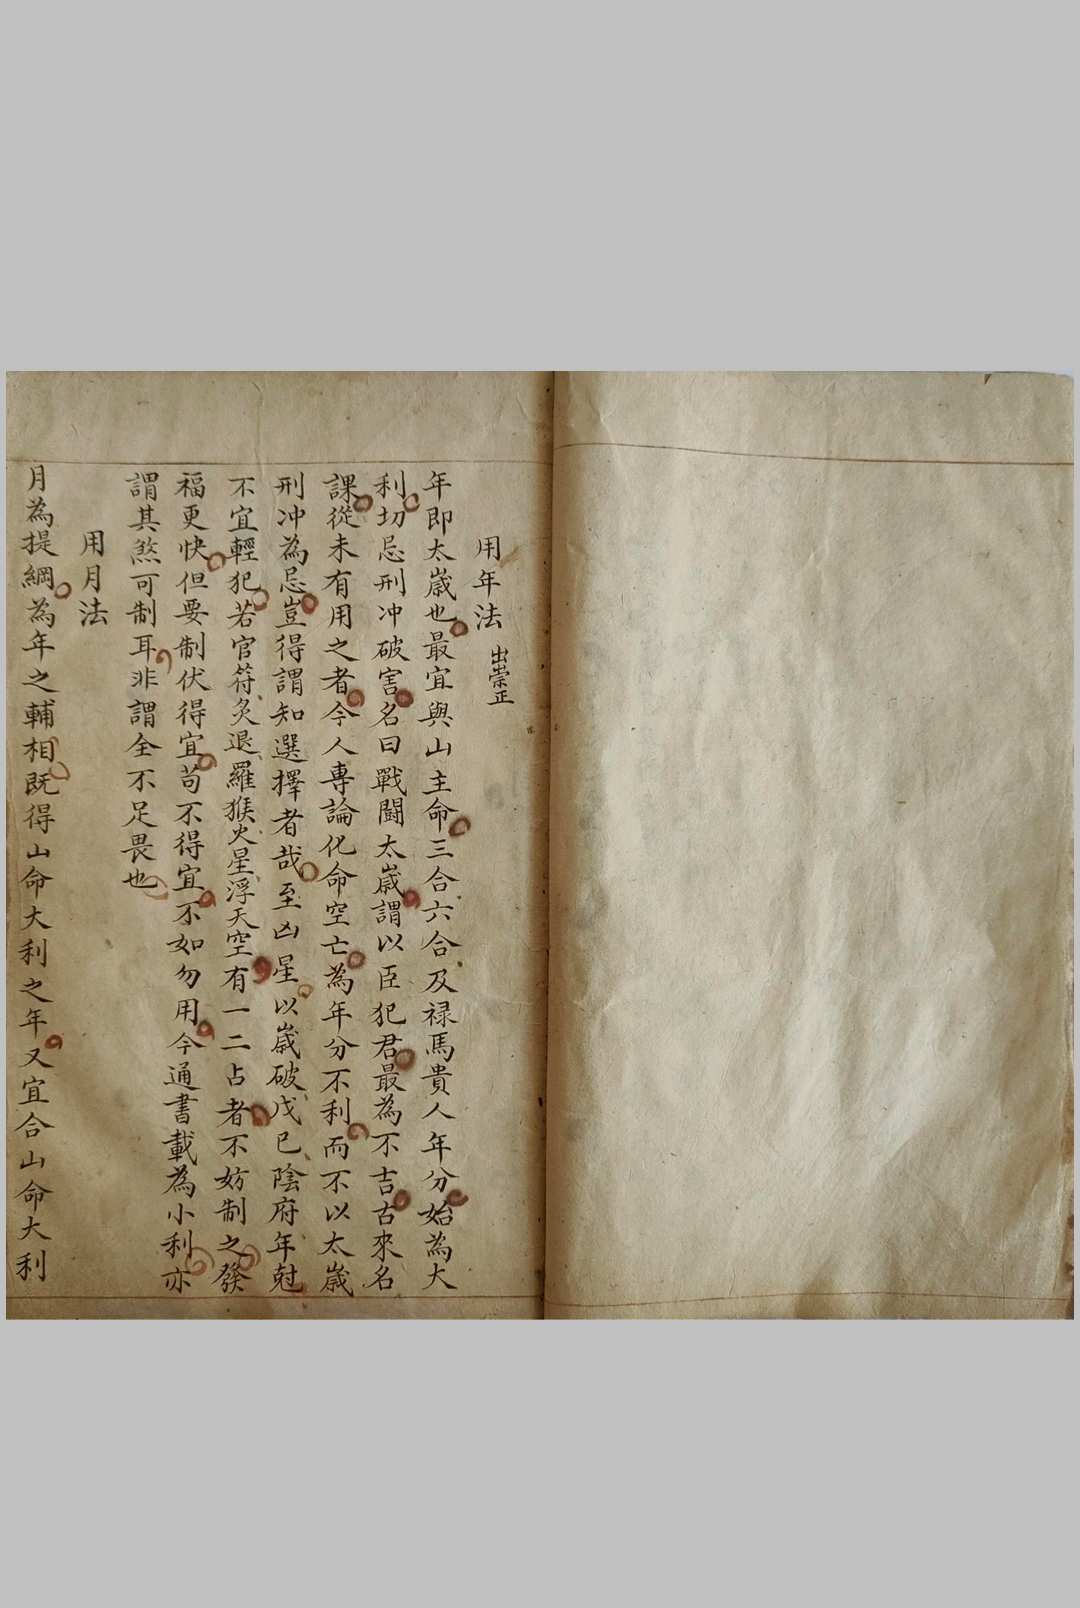 用年法 出崇正
年即太歳也最宜與山主命三合六合及禄馬貴人年分始為大
利切忌刑冲破害名曰戰鬪太歳謂以臣犯君最為不吉古來名
課從未有用之者今人專論化命空亡為年分不利而不以太歳
刑冲為忌豈得謂知選擇者哉至凶星以歳破戊已陰府年尅
不宜輕犯若官符灸退羅猴火星浮天空有一二占者不妨制之發
福更快但要制伏得宜苟不得宜不如勿用今通書載為小利亦
謂其煞可制耳非謂全不足畏也
用月法
月為提綱為年之輔相既得山命大利之年又宜合山命大利